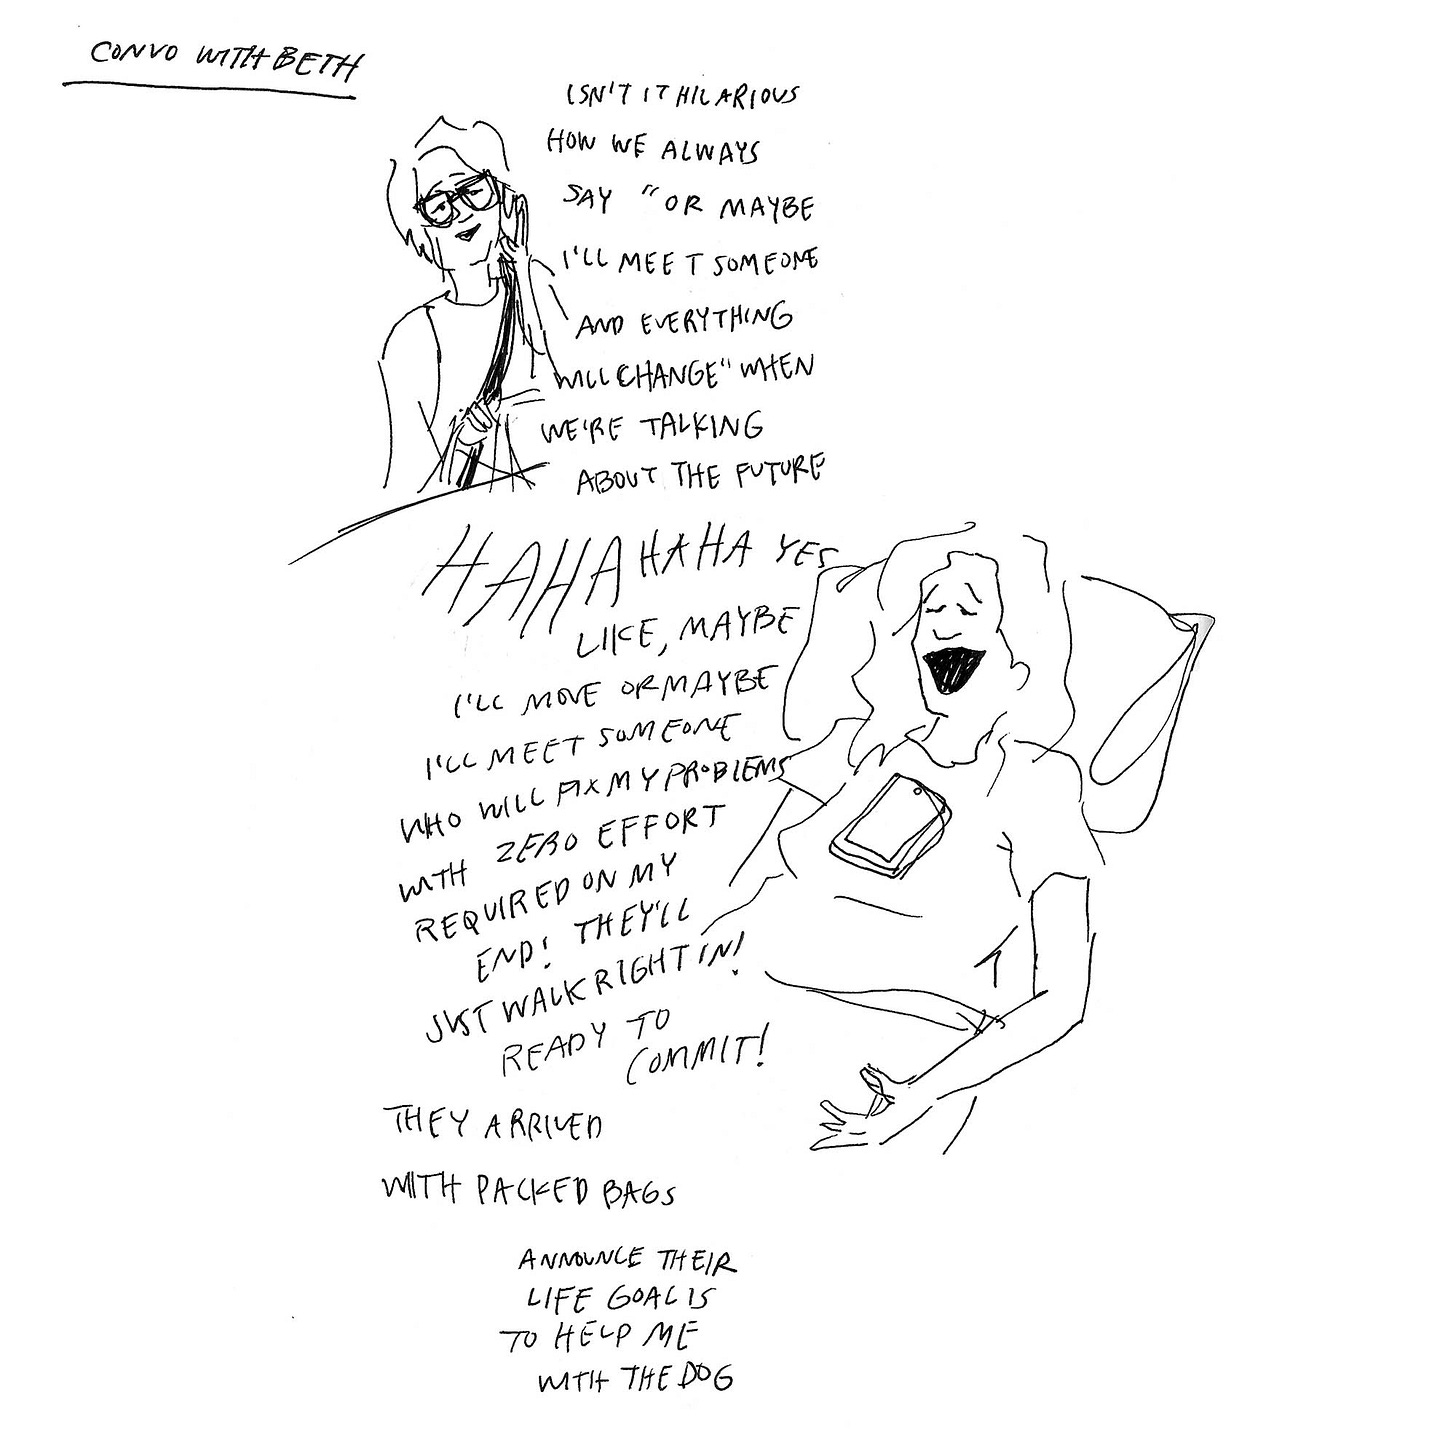 CONVO WITH BETH
ISN'T IT HILARIOUS
HOW WE ALWAYS
SAY "OR MAYBE
I'LL MEET SOMEONE
AND EVERYTHING
WILL CHANGE" WHEN
WE'RE TALKING
ABOUT THE FUTURE
HAHAHAHA YES
LIKE, MAYBE
I'LL MOVE OR MAYBE
I'LL MEET SOMEONE
WHO WILL FIX MY PROBLEMS
WITH ZERO EFFORT
REQUIRED ON MY
END! THEY'LL
JUST WALK RIGHT IN!
READY TO
COMMIT!
THEY ARRIVED
WITH PACKED BAGS
ANNOUNCE THEIR
LIFE GOAL IS
TO HELP ME
WITH THE DOG